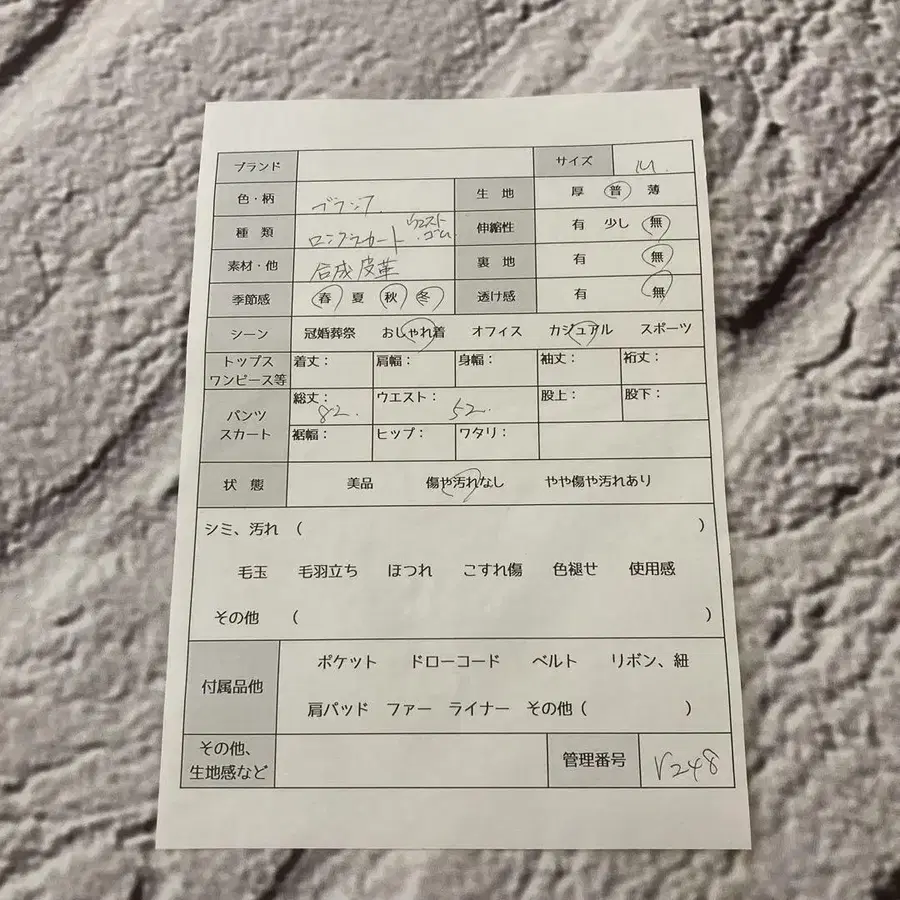 ブランド サイズ M.
色・柄 ブラック. 生 地 厚 普 薄
種 類 ロングスカート ウエスト.ゴム. 伸縮性 有 少し 無
素材・他 合成皮革 裏 地 有 無
季節感 春 夏 秋 冬 透け感 有 無
シーン 冠婚葬祭 おしゃれ着 オフィス カジュアル スポーツ
トップス ワンピース等 着丈： 肩幅： 身幅： 袖丈： 裄丈：
パンツ スカート 総丈： 82. ウエスト： 52. 股上： 股下：
裾幅： ヒップ： ワタリ：
状 態 美品 傷や汚れなし やや傷や汚れあり
シミ、汚れ ( )
毛玉 毛羽立ち ほつれ こすれ傷 色褪せ 使用感
その他 ( )
付属品他 ポケット ドローコード ベルト リボン、紐
肩パッド ファー ライナー その他 ( )
その他、生地感など 管理番号 V248